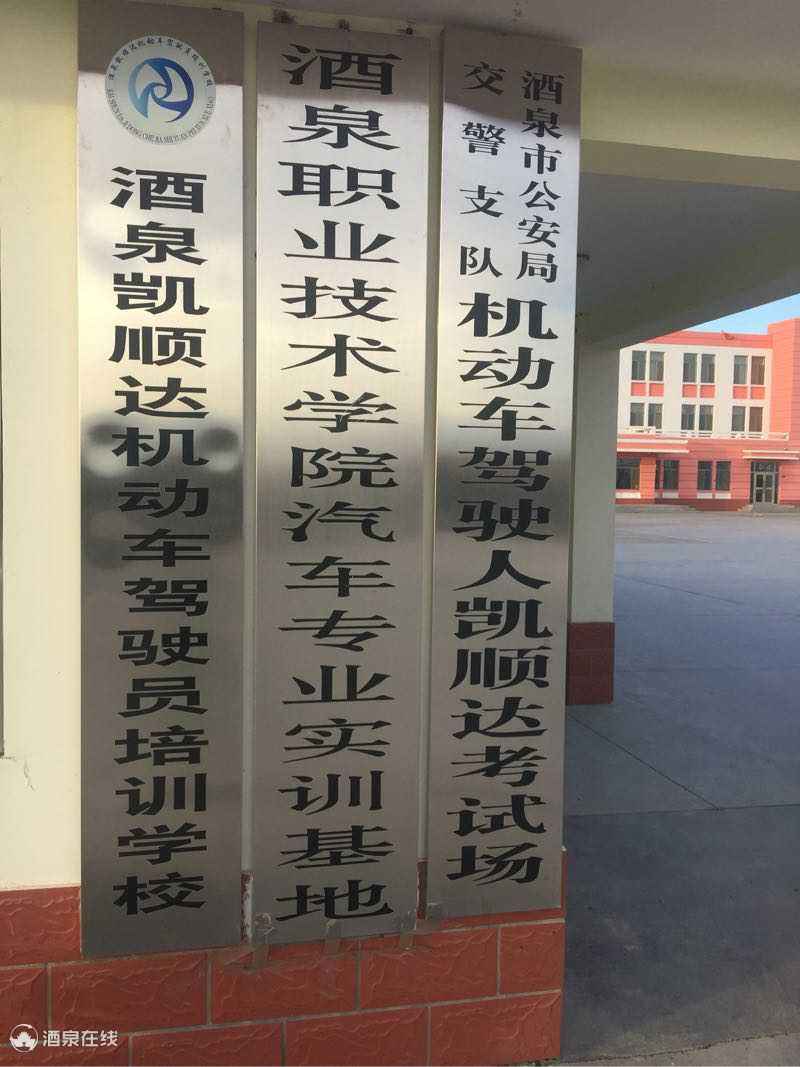 酒泉凯顺达机动车驾驶员培训学校
酒泉职业技术学院汽车专业实训基地
酒泉市公安局
交警支队
机动车驾驶人凯顺达考试场
酒泉在线